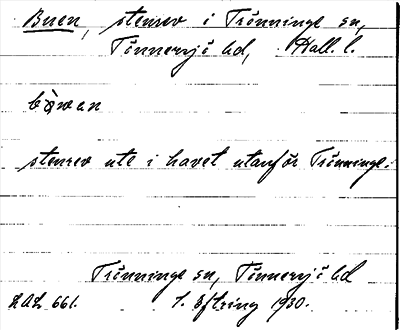 Buen, stenrev i Trönninge sn,
Tönnersjö hd, Hall. l.
bòwan
stenrev ute i havet utanför Trönninge.
Trönninge sn, Tönnersjö hd
LAL 661. 1. Eftring 1930.